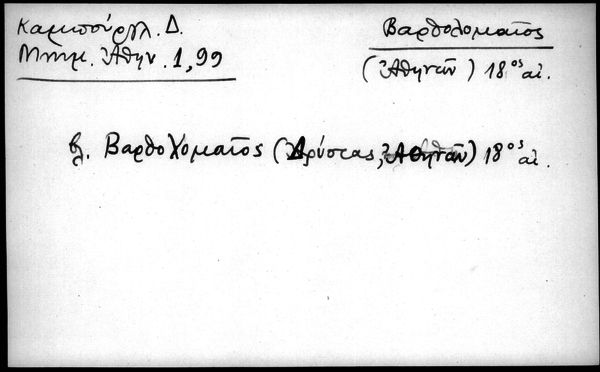 Καμπούργλ. Δ.
Μνημ. Ἀθην. 1, 99
Βαρθολομαῖος
(Ἀθηνῶν) 18ος αἰ.
βλ. Βαρθολομαῖος (Δρύστας, Ἀθηνῶν) 18ος αἰ.